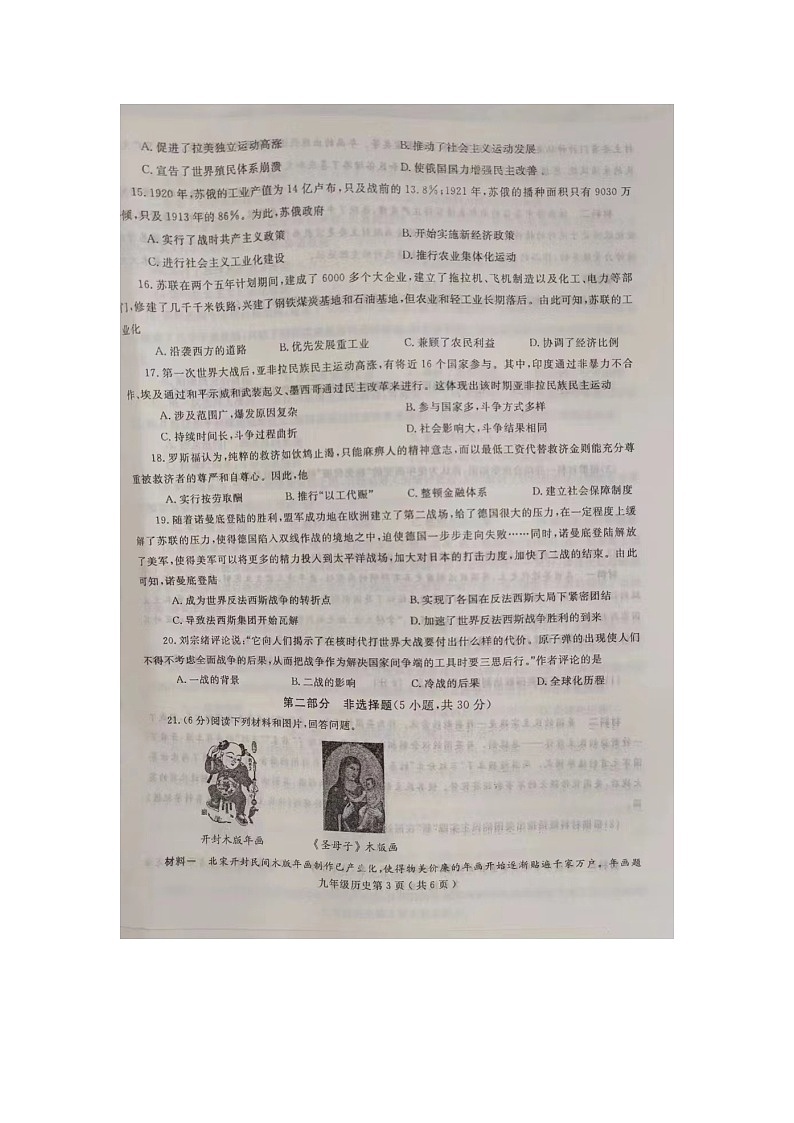 A. 促进了拉美独立运动高涨 B. 推动了社会主义运动发展
C. 宣告了世界殖民体系崩溃 D. 使俄国国力增强民主改善.
15. 1920 年,苏俄的工业产值为 14 亿卢布,只及战前的 13.8%;1921 年,苏俄的播种面积只有 9030 万
候,只及 1913 年的 86%。为此,苏俄政府
A. 实行了战时共产主义政策 B. 开始实施新经济政策
C. 进行社会主义工业化建设 D. 推行农业集体化运动
16. 苏联在两个五年计划期间,建成了 6000 多个大企业,建立了拖拉机、飞机制造以及化工、电力等部
门,修建了几千千米铁路,兴建了钢铁煤炭基地和石油基地,但农业和轻工业长期落后。由此可知,苏联的工
业化
A. 沿袭西方的道路 B. 优先发展重工业 C. 兼顾了农民利益 D. 协调了经济比例
17. 第一次世界大战后,亚非拉民族民主运动高涨,有将近 16 个国家参与。其中,印度通过非暴力不合
作、埃及通过和平示威和武装起义、墨西哥通过民主改革来进行。这体现出该时期亚非拉民族民主运动
A. 涉及范围广,爆发原因复杂 B. 参与国家多,斗争方式多样
C. 持续时间长,斗争过程曲折 D. 社会影响大,斗争结果相同
18. 罗斯福认为,纯粹的救济如饮鸩止渴,只能麻痹人的精神意志,而以最低工资代替救济金则能充分尊
重被救济者的尊严和自尊心。因此,他
A. 实行按劳取酬 B. 推行“以工代赈” C. 整顿金融体系 D. 建立社会保障制度
19. 随着诺曼底登陆的胜利,盟军成功地在欧洲建立了第二战场,给了德国很大的压力,在一定程度上缓
解了苏联的压力,使得德国陷入双线作战的境地之中,迫使德国一步步走向失败……同时,诺曼底登陆解放
了美军,使得美军可以将更多的精力投入到太平洋战场,加大对日本的打击力度,加快了二战的结束。由此
可知,诺曼底登陆
A. 成为世界反法西斯战争的转折点 B. 实现了各国在反法西斯大局下紧密团结
C. 导致法西斯集团开始瓦解 D. 加速了世界反法西斯战争胜利的到来
20. 刘宗绪评论说:“它向人们揭示了在核时代打世界大战要付出什么样的代价。原子弹的出现使人们
不得不考虑全面战争的后果,从而把战争作为解决国家间争端的工具时要三思后行。”作者评论的是
A. 一战的背景 B. 二战的影响 C. 冷战的后果 D. 全球化历程
第二部分 非选择题(5 小题,共 30 分)
21. (6 分)阅读下列材料和图片,回答问题。
开封木版年画 《圣母子》木版画
材料一 北宋开封民间木版年画制作已产业化,使得物美价廉的年画开始逐渐贴遍千家万户。年画题
九年级历史第 3 页(共 6 页)